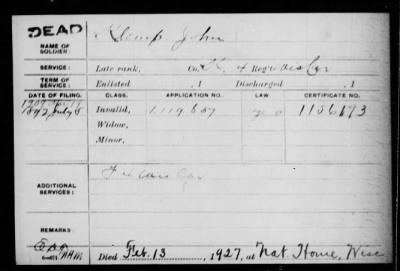 DEAD
NAME OF SOLDIER: Klimp John
SERVICE: Late rank, Co. K, 4 Reg't Wis Cav
TERM OF SERVICE: Enlisted , 1 Discharged , 1
DATE OF FILING. CLASS. APPLICATION NO. LAW. CERTIFICATE NO.
1892 July 5 Invalid, 1,119,657 1156173
Widow,
Minor,
ADDITIONAL SERVICES:
REMARKS:
Died Feb. 13, 1927, at Nat. Home, Wisc